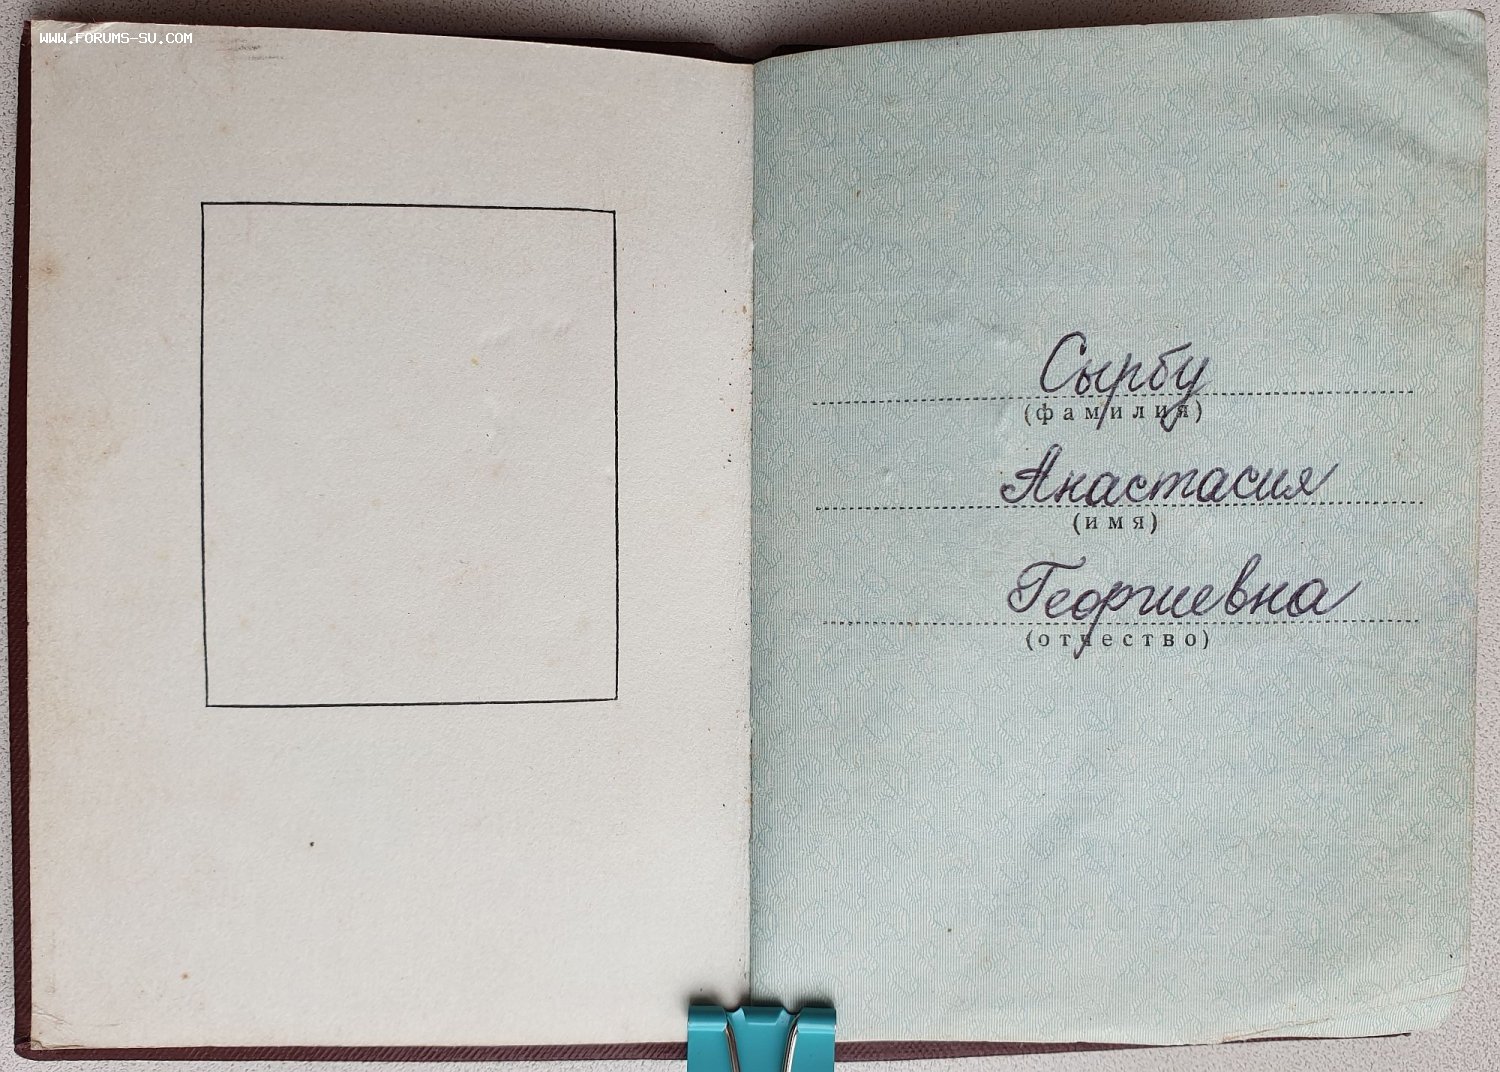 WWW.FORUMS-SU.COM
Сырбу
(фамилия)
Анастасия
(имя)
Георгиевна
(отчество)